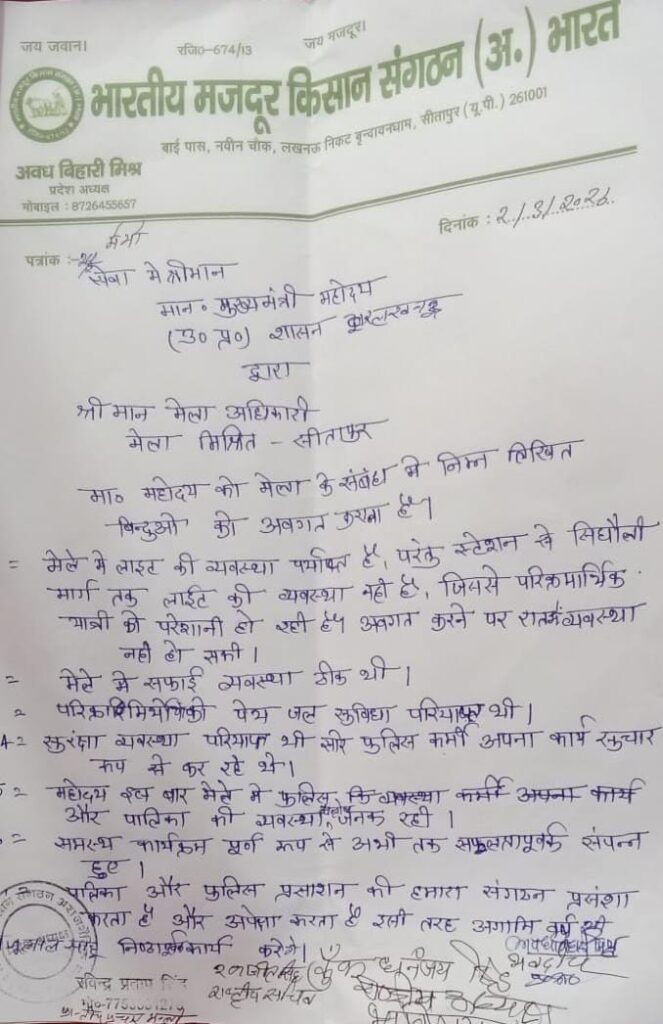 जय जवान।
रजि०-674/13
जय मजदूर।
भारतीय मजदूर किसान संगठन (अ.) भारत
बाई पास, नवीन चौक, लखनऊ निकट वृन्दावनधाम, सीतापुर (यू.पी.) 261001
अवध विहारी मिश्र
प्रदेश अध्यक्ष
मोबाइल : 8726455657
दिनांक : 2/3/2026
पत्रांक :-
सेवा मे श्रीमान
मान० मुख्यमंत्री महोदय
(उ० प्र०) शासन
द्वारा
श्री मान मेला अधिकारी
मेला मिश्रित - सीतापुर
मा० महोदय को मेला के संबंध मे निम्न लिखित
बिन्दुओ को अवगत कराना है।
= मेले मे लाइट की व्यवस्था पर्याप्त है, परंतु स्टेशन से सिधौली
मार्ग तक लाईट की व्यवस्था नही है, जिससे परिक्रमार्थिक
यात्री को परेशानी हो रही है। अवगत करने पर रातके व्यवस्था
नही हो सकी।
= मेले मे सफाई व्यवस्था ठीक थी।
= पेय जल सुविधा परियाप्त थी।
4= सुरक्षा व्यवस्था परियाप्त थी और पुलिस कर्मी अपना कार्य सुचार
रूप से कर रहे थे।
5= महोदय इस बार मेले मे पुलिस कि व्यवस्था कर्मी अपना कार्य
और पालिका की व्यवस्था जनक रही।
= समस्थ कार्यक्रम पूर्ण रूप से अभी तक सफलतापूर्वक संपन्न
हुए।
पालिका और पुलिस प्रसाशन की हमारा संगठन प्रसंशा
करता है और अपेक्षा करता है इसी तरह अगामि वर्ष भी
कार्य करेगे।
भवदीय
रविन्द्र प्रताप सिंह
कुँवर धनंजय सिंह
राष्ट्रीय सचिव
राष्ट्रीय अध्यक्ष